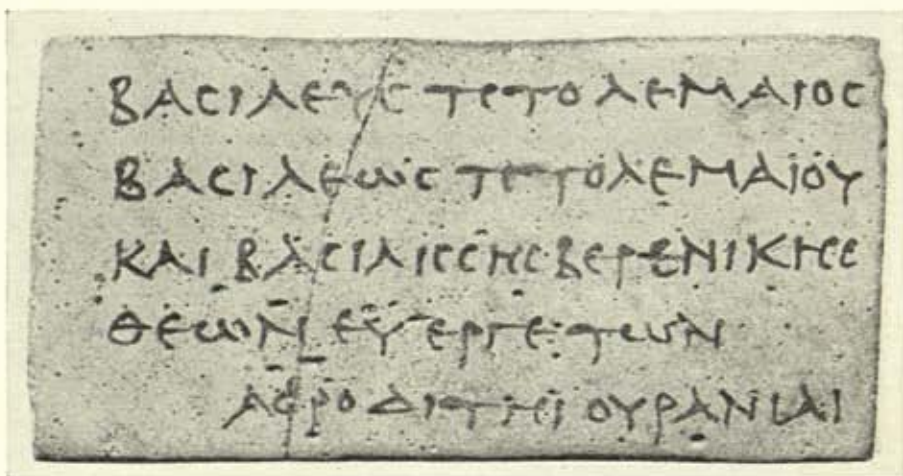 ΒΑϹΙΛΕΥϹ ΠΤΟΛΕΜΑΙΟϹ
ΒΑϹΙΛΕωϹ ΠΤΟΛΕΜΑΙΟΥ
ΚΑΙ ΒΑϹΙΛΙϹϹΗϹ ΒΕΡΕΝΙΚΗϹ
ΘΕωΝ ΕΥΕΡΓΕΤωΝ
ΑΦΡΟΔΙΤΗΙ ΟΥΡΑΝΙΑΙ